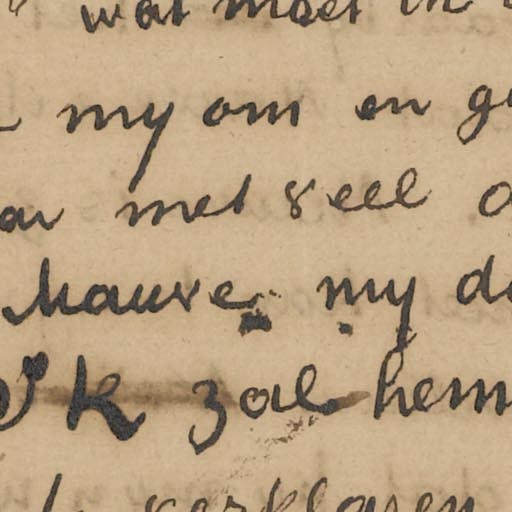 wat moet ik
my om en
met veel
Mauve my
Ik zal hem
verklaren